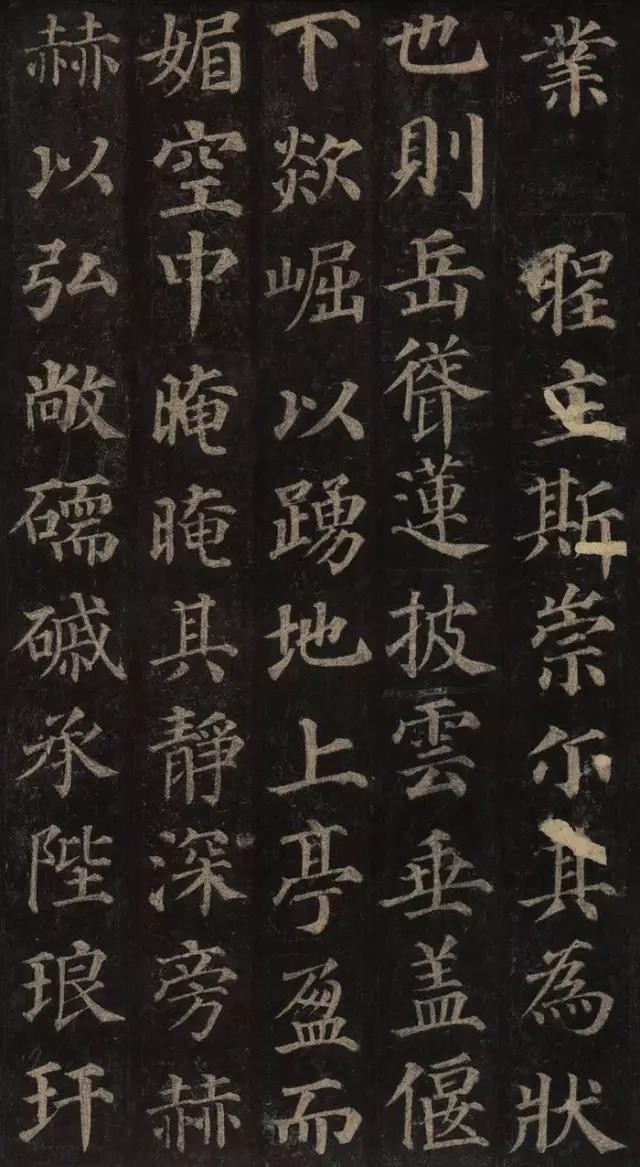 業聖主斯崇尔其為狀
也則岳聳蓮披雲垂盖偃
下欻崛以踴地上亭盈而
媚空中晻晻其靜深旁赫
赫以弘敞礝磩承陛琅玕